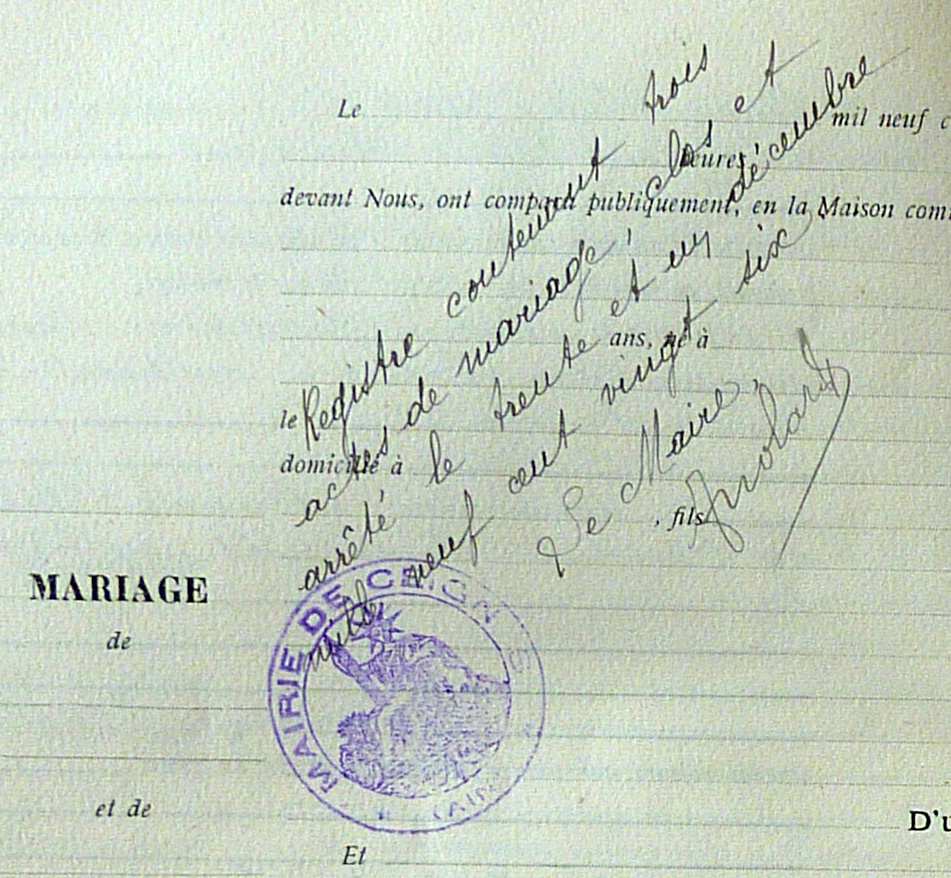 Le mil neuf c
heures
devant Nous, ont comparu publiquement, en la Maison com
ans, né à
le
domicilié à
, fils
Registre contenant trois
actes de mariage, clos et
arrêté le trente et un décembre
mille neuf cent vingt six
Le Maire,
MARIAGE
de
et de
MAIRIE DE
(AIN)
D'u
Et